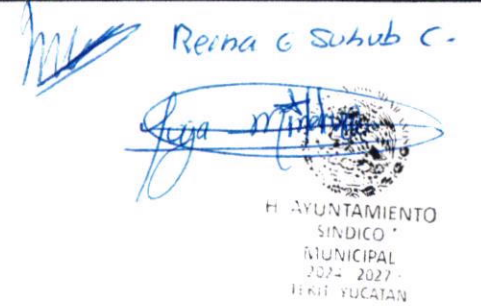 Reina G Suhub C.
H. AYUNTAMIENTO
SINDICO
MUNICIPAL
2024 2027
TEKIT YUCATAN